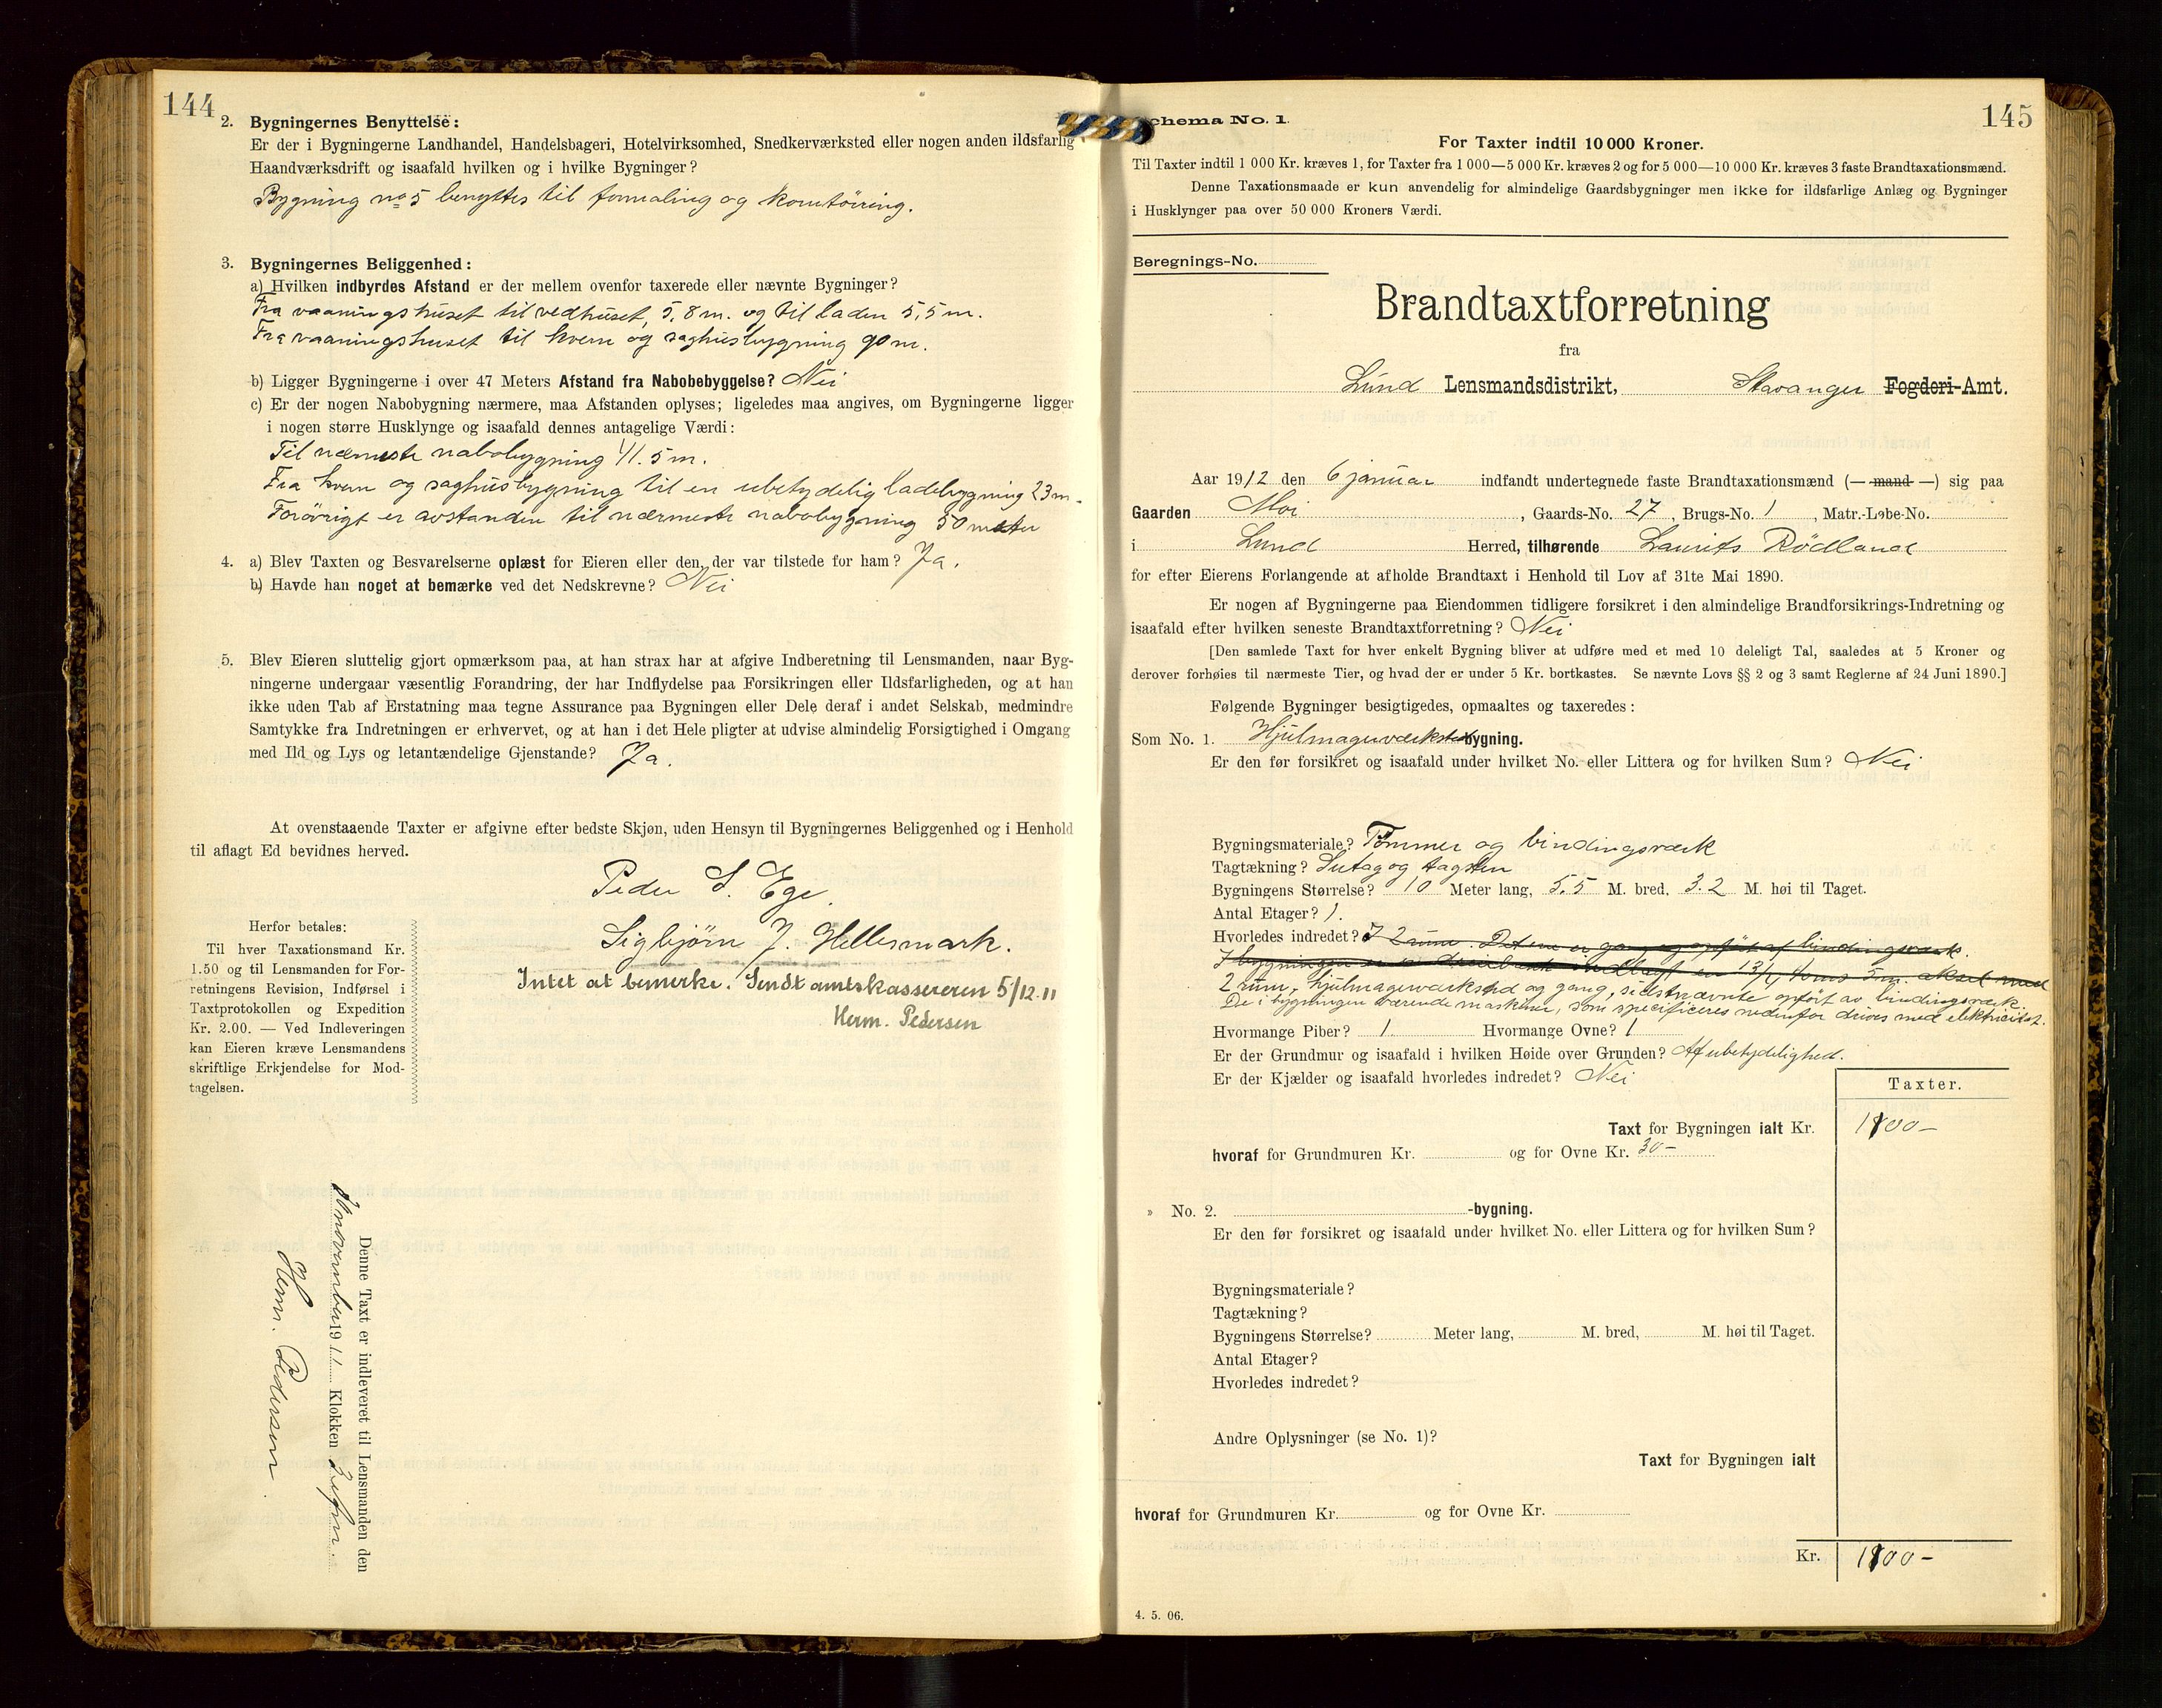 144
2. Bygningernes Benyttelse:
Er der i Bygningerne Landhandel, Handelsbageri, Hotelvirksomhed, Snedkerværksted eller nogen anden ildsfarlig
Haandværksdrift og isaafald hvilken og i hvilke Bygninger?
Bygning no 5 benyttes til formaling og
3. Bygningernes Beliggenhed:
a) Hvilken indbyrdes Afstand er der mellem ovenfor taxerede eller nævnte Bygninger?
Fra vaaningshuset til vedhuset, 5,8 m. og til laden 5,5 m.
Fra vaaningshuset til kvern og saghusbygning 90 m.
b) Ligger Bygningerne i over 47 Meters Afstand fra Nabobebyggelse? Nei
c) Er der nogen Nabobygning nærmere, maa Afstanden oplyses; ligeledes maa angives, om Bygningerne ligger
i nogen større Husklynge og isaafald dennes antagelige Værdi:
Til nærmeste nabobygning 41.5 m.
Fra kvern og saghusbygning til en ubetydelig ladebygning 23 m.
Forövrigt er avstanden til nærmeste nabobygning 50 meter
4. a) Blev Taxten og Besvarelserne oplæst for Eieren eller den, der var tilstede for ham? Ja.
b) Havde han noget at bemærke ved det Nedskrevne? Nei
5. Blev Eieren sluttelig gjort opmærksom paa, at han strax har at afgive Indberetning til Lensmanden, naar Byg-
ningerne undergaar væsentlig Forandring, der har Indflydelse paa Forsikringen eller Ildsfarligheden, og at han
ikke uden Tab af Erstatning maa tegne Assurance paa Bygningen eller Dele deraf i andet Selskab, medmindre
Samtykke fra Indretningen er erhvervet, og at han i det Hele pligter at udvise almindelig Forsigtighed i Omgang
med Ild og Lys og letantændelige Gjenstande? Ja.
At ovenstaaende Taxter er afgivne efter bedste Skjøn, uden Hensyn til Bygningernes Beliggenhed og i Henhold
til aflagt Ed bevidnes herved.
Peder S. Ege.
Sigbjörn J. Hellesmark.
Intet at bemerke. Sendt amtskassereren 5/12.11
Herm. Pedersen
Herfor betales:
Til hver Taxationsmand Kr.
1.50 og til Lensmanden for For-
retningens Revision, Indførsel i
Taxtprotokollen og Expedition
Kr. 2.00. — Ved Indleveringen
kan Eieren kræve Lensmandens
skriftlige Erkjendelse for Mod-
tagelsen.
Denne Taxt er indleveret til Lensmanden den
november 1911 Klokken
Herm. Pedersen
145
Schema No. 1.
For Taxter indtil 10 000 Kroner.
Til Taxter indtil 1 000 Kr. kræves 1, for Taxter fra 1 000—5 000 Kr. kræves 2 og for 5 000—10 000 Kr. kræves 3 faste Brandtaxationsmænd.
Denne Taxationsmaade er kun anvendelig for almindelige Gaardsbygninger men ikke for ildsfarlige Anlæg og Bygninger
i Husklynger paa over 50 000 Kroners Værdi.
Beregnings-No.
Brandtaxtforretning
fra
Lund Lensmandsdistrikt, Stavanger Fogderi-Amt.
Aar 1912 den 6 januar indfandt undertegnede faste Brandtaxationsmænd (— mand —) sig paa
Gaarden Moi, Gaards-No. 27, Brugs-No. 1, Matr.-Løbe-No.
i Lund Herred, tilhørende Laurits Rödland
for efter Eierens Forlangende at afholde Brandtaxt i Henhold til Lov af 31te Mai 1890.
Er nogen af Bygningerne paa Eiendommen tidligere forsikret i den almindelige Brandforsikrings-Indretning og
isaafald efter hvilken seneste Brandtaxtforretning? Nei
[Den samlede Taxt for hver enkelt Bygning bliver at udføre med et med 10 deleligt Tal, saaledes at 5 Kroner og
derover forhøies til nærmeste Tier, og hvad der er under 5 Kr. bortkastes. Se nævnte Lovs §§ 2 og 3 samt Reglerne af 24 Juni 1890.]
Følgende Bygninger besigtigedes, opmaaltes og taxeredes:
Som No. 1. Hjulmagerværksted-bygning.
Er den før forsikret og isaafald under hvilket No. eller Littera og for hvilken Sum? Nei
Bygningsmateriale? Tømmer og bindingsværk
Tagtækning? Sutag og tagsten
Bygningens Størrelse? 10 Meter lang, 5.5 M. bred, 3.2 M. høi til Taget.
Antal Etager? 1.
Hvorledes indredet? I 2 rum. Det ene er gang og opført af bindingsværk.
I bygningen er aksel med
2 rum, hjulmagerværksted og gang, sidstnævnte opført av bindingsværk.
De i bygningen værende maskiner, som specificeres nedenfor drives med elektricitet.
Hvormange Piber? 1 Hvormange Ovne? 1
Er der Grundmur og isaafald i hvilken Høide over Grunden? Af ubetydelighed.
Er der Kjælder og isaafald hvorledes indredet? Nei
Taxter.
Taxt for Bygningen ialt Kr. 1100–
hvoraf for Grundmuren Kr. og for Ovne Kr. 30–
» No. 2. -bygning.
Er den før forsikret og isaafald under hvilket No. eller Littera og for hvilken Sum?
Bygningsmateriale?
Tagtækning?
Bygningens Størrelse? Meter lang, M. bred, M. høi til Taget.
Antal Etager?
Hvorledes indredet?
Andre Oplysninger (se No. 1)?
Taxt for Bygningen ialt
hvoraf for Grundmuren Kr. og for Ovne Kr.
Kr. 1100–
4. 5. 06.